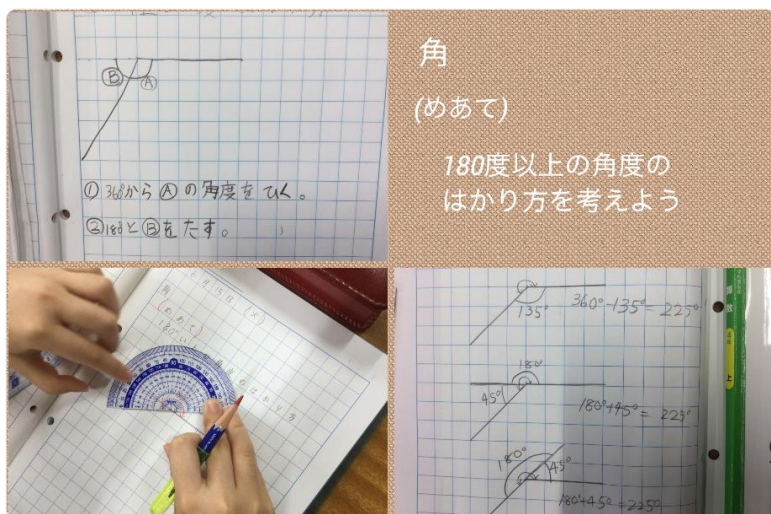 Ⓑ
Ⓐ
①360°からⒶの角度をひく。
②180とⒷをたす。
角
(めあて)
180度以上の角度の
はかり方を考えよう
月15日(火)
角
(めあて)
135°
360°-135°=225°
180°
45°
180°+45°=225°
180°
45°
180°+45°=225°
上